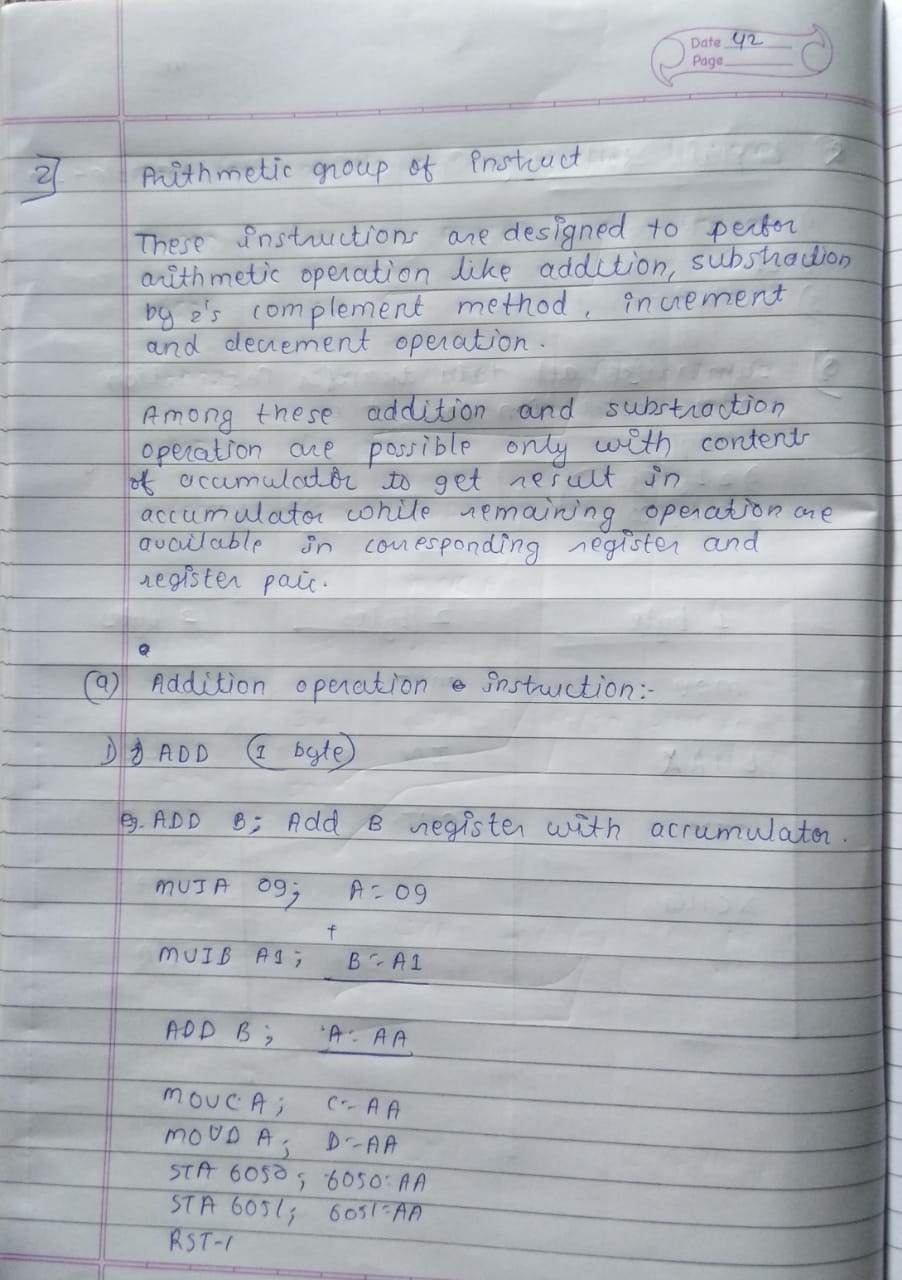 Date 42
Page
2] Arithmetic group of instruct
These instructions are designed to perfor
arithmetic operation like addition, substraction
by 2's complement method, increment
and decrement operation.
Among these addition and substraction
operation are possible only with content
of accumulator to get result in
accumulator while remaining operation are
available in corresponding register and
register pair.
(a) Addition operation instruction:-
1) ADD (1 byte)
eg. ADD B; Add B register with accumulator.
MVIA 09; A = 09
+
MVIB A1; B = A1
ADD B; A = AA
MOVC A; C = AA
MOVD A; D = AA
STA 6050; 6050 = AA
STA 6051; 6051 = AA
RST-1